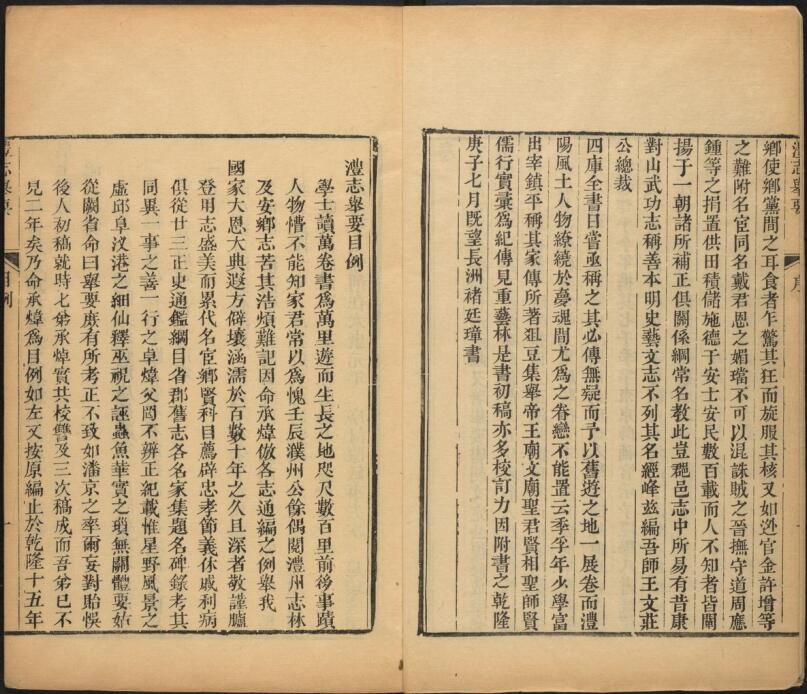 鄉使鄉黨間之耳食者乍驚其狂而旋服其核又如迯官金許增等
之難附名宦同名戴君恩之媚璫不可以混誅賊之晉撫守道周應
鍾等之捐置供田積儲施德于安士安民數百載而人不知者皆闡
揚于一朝諸所補正俱關係綱常名教此豈郡邑志中所易有昔康
對山武功志稱善本明史藝文志不列其名經峰玆編吾師王文莊
公總裁
四庫全書日嘗亟稱之其必傳無疑而予以舊遊之地一展卷而澧
陽風土人物繚繞於夢魂間尤爲之眷戀不能置云季孚年少學富
出宰鎮平稱其家傳所著俎豆集舉帝王廟文廟聖君賢相聖師賢
儒行實彙爲紀傳見重藝林是書初稿亦多校訂力因附書之乾隆
庚子七月既望長洲褚廷璋書
澧志舉要目例
學士讀萬卷書爲萬里遊而生長之地咫尺數百里前後事蹟
人物懵不能知家君常以爲愧壬辰濮州公餘偶閱澧州志林
及安鄉志苦其浩煩難記因命承煒倣各志通編之例舉我
國家大恩大典遐方僻壤涵濡於百數十年之久且深者敬謹臚
登用志盛美而累代名宦鄉賢科目薦辟忠孝節義休戚利病
俱從廿三正史通鑑綱目省郡舊志各名家集題名碑錄考其
同異一事之善一行之卓煒父罔不辨正紀載惟星野風景之
虛邱阜汊港之細仙釋巫祝之誣蟲魚華實之瑣無關體要姑
從闕省命曰舉要庶有所考正不致如潘京之率爾妄對貽悞
後人初稿就時七弟承焯實共校讐及三次稿成而吾弟已不
見二年矣乃命承煒爲目例如左又按原編止於乾隆十五年
澧志舉要
序
目例
一